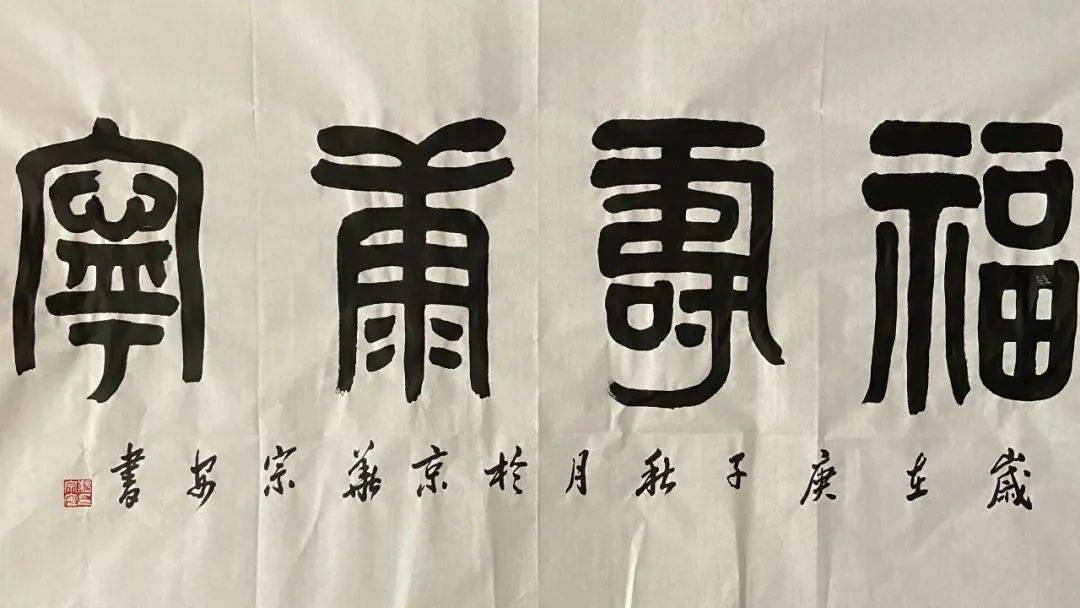 福壽康寧
歲在庚子秋月於京華宗安書